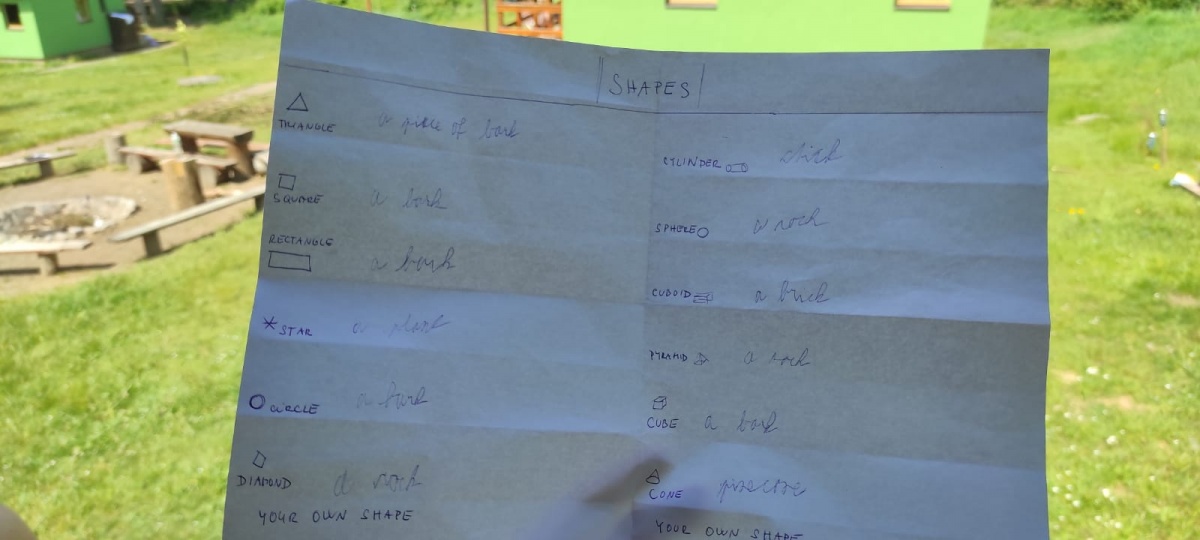 SHAPES
TRIANGLE a piece of bark
SQUARE a bark
RECTANGLE
a bark
STAR a plant
CIRCLE a bark
DIAMOND a rock
YOUR OWN SHAPE
CYLINDER stick
SPHERE a rock
CUBOID a brick
PYRAMID a rock
CUBE a bark
CONE pinecone
YOUR OWN SHAPE